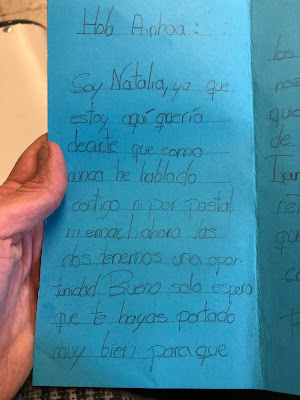 Hola Ainhoa:
Soy Natalia, ya que
estoy aquí quería
decirte que como
nunca he hablado
contigo ni por postal
ni email ahora las
dos tenemos una opor
tunidad. Bueno solo espero
que te hayas portado
muy bien para que
los
que
de
que